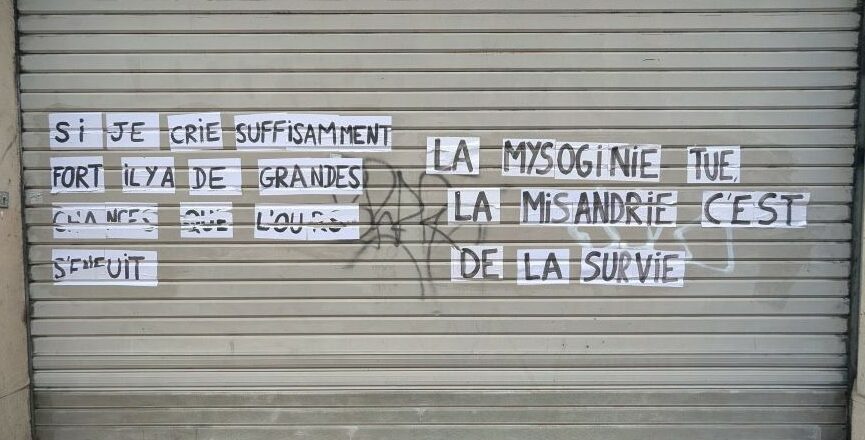 SI JE CRIE SUFFISAMMENT
FORT IL Y A DE GRANDES
CHANCES QUE L'OURS
S'ENFUIT
LA MYSOGINIE TUE,
LA MISANDRIE C'EST
DE LA SURVIE